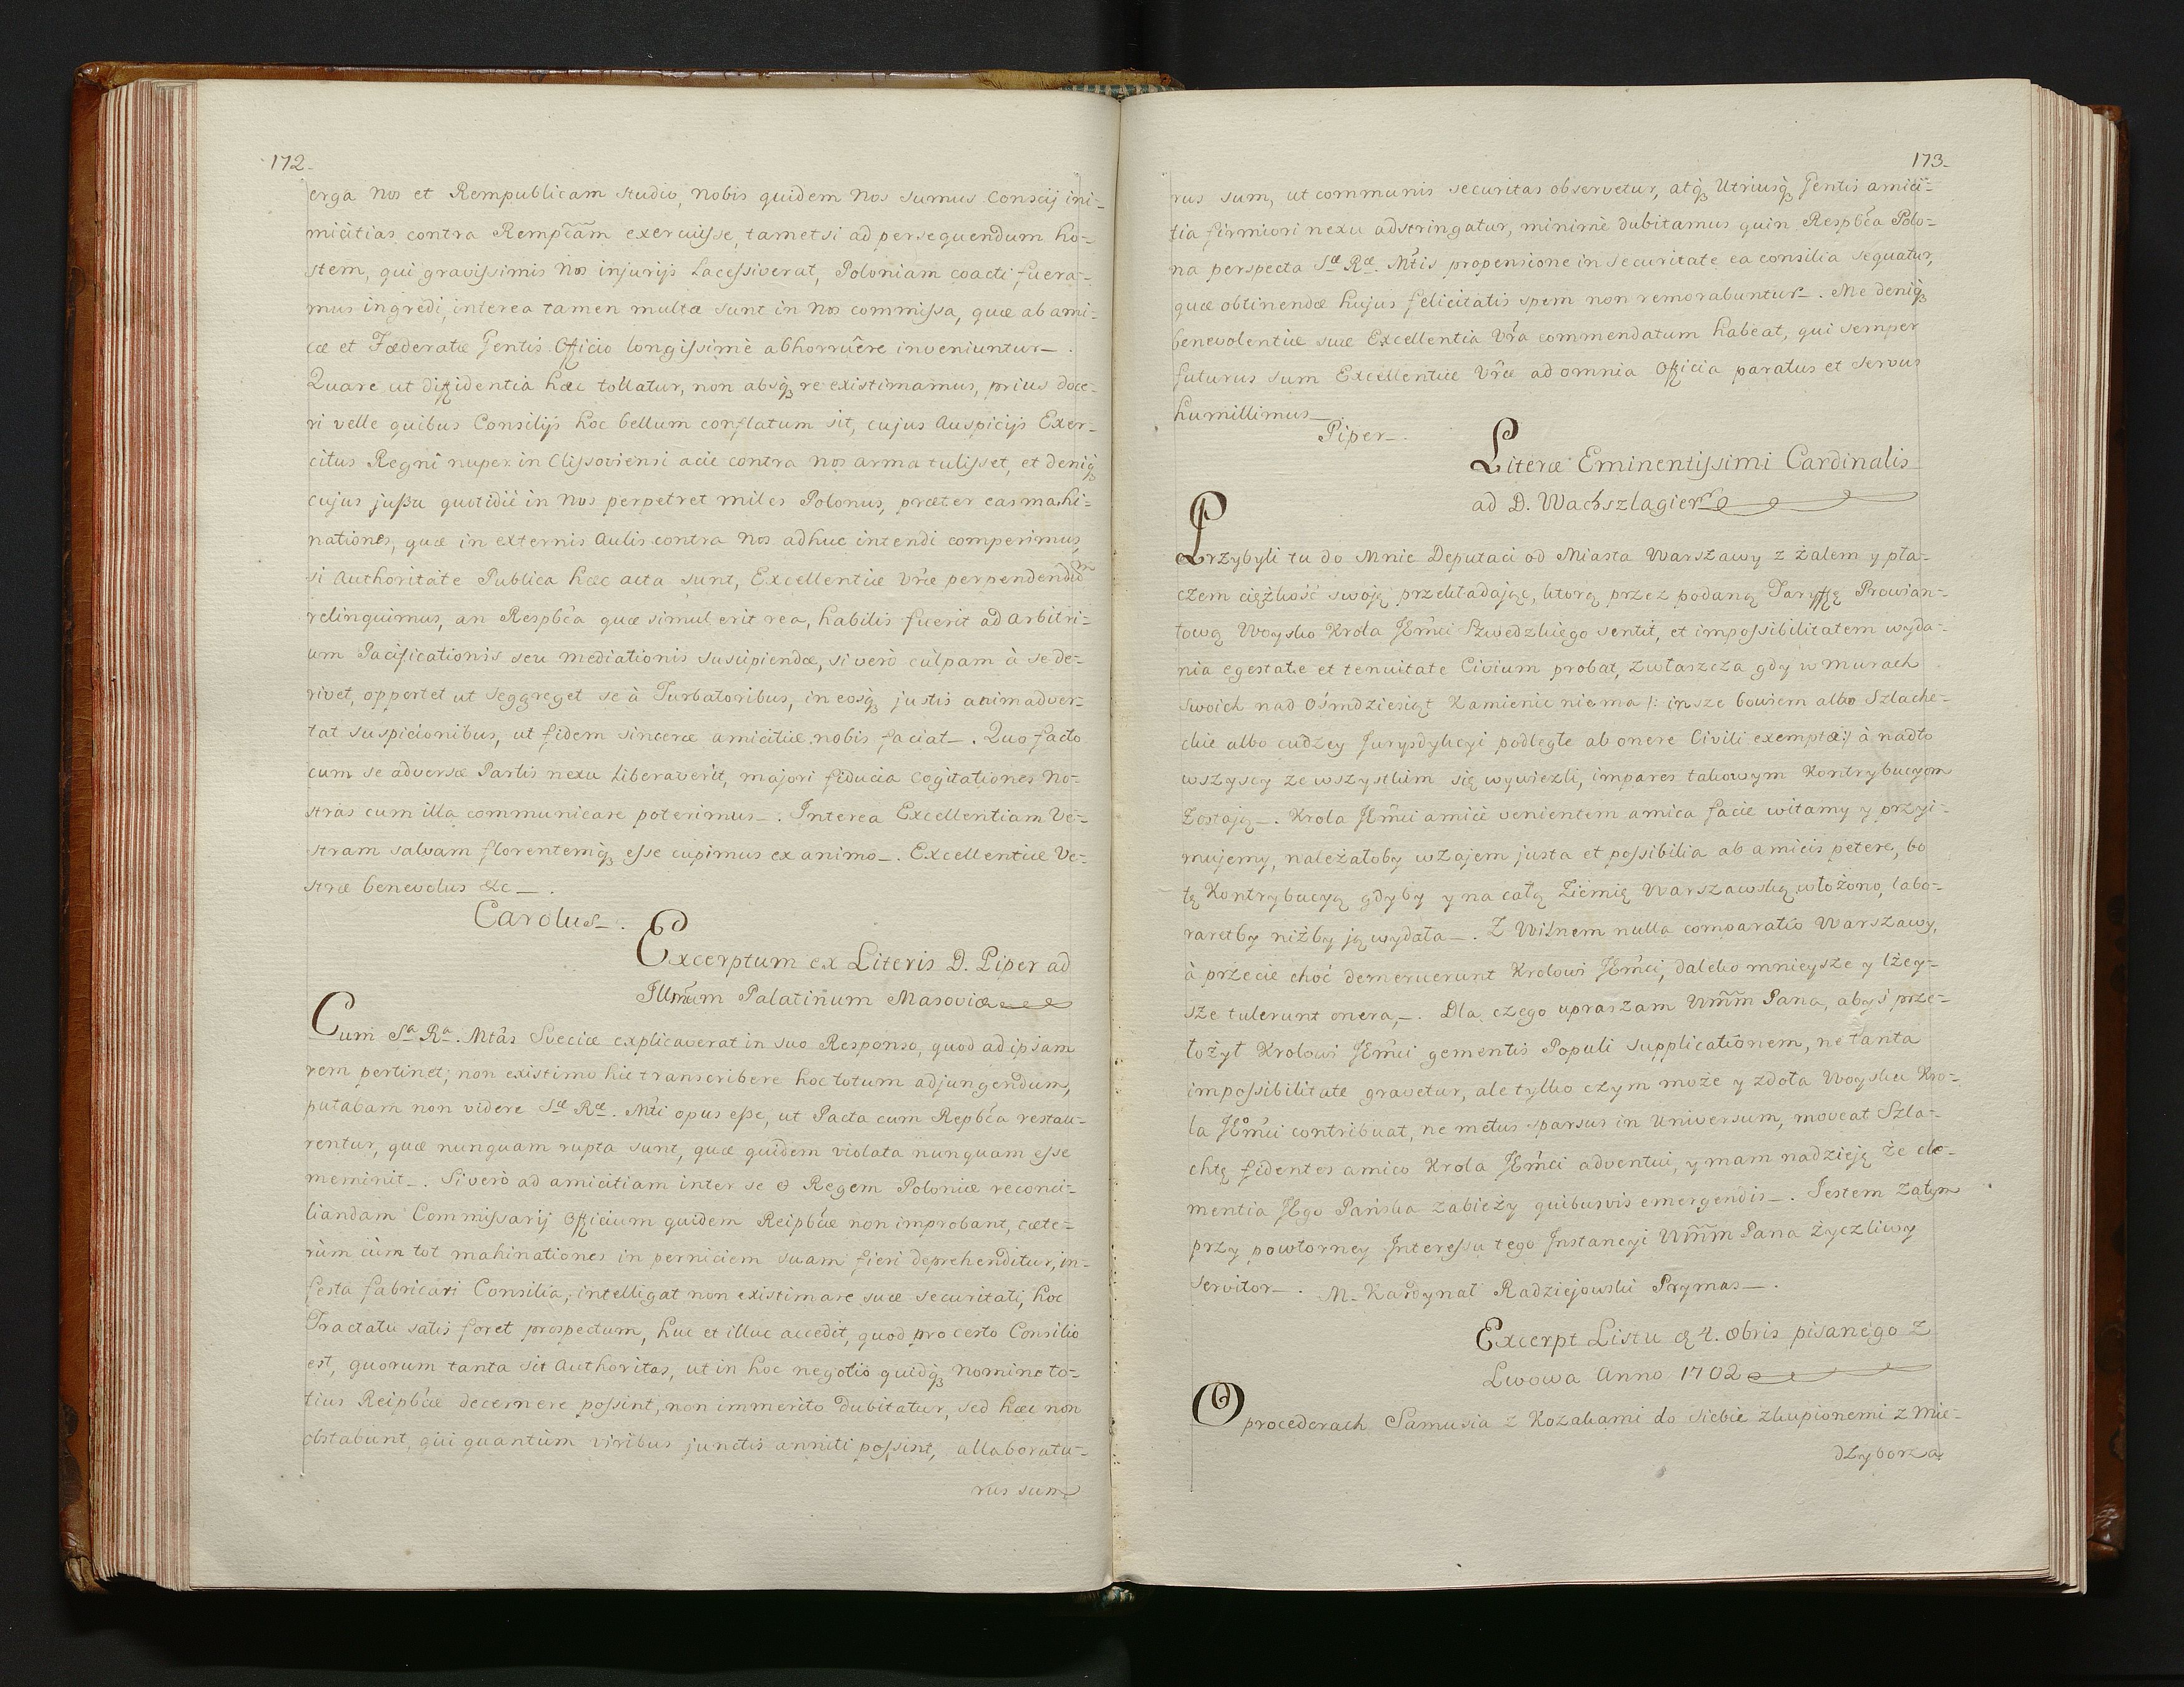 172.
erga Nos et Rempublicam studio, nobis quidem Nos sumus Conscij ini-
micitias contra Rempcãm exercuisse, tametsi ad persequendum ho-
stem, qui gravissimis Nos injurijs Lacessiverat, Poloniam coacti fuera-
mus ingredi, interea tamen multa sunt in Nos commissa, quæ ab ami-
cæ et Fæderatæ Gentis Officio longissimè abhorruêre inveniuntur.
Quare ut diffidentia hæc tollatur, non absq3 re existimamus, prius doce-
ri velle quibus Consilijs hoc bellum conflatum sit, cujus Auspicijs Exer-
citus Regni nuper in Clissoviensi acie contra nos arma tulisset, et deniq3
cujus jussu quotidiè in Nos perpetret miles Polonus, præter eas machi-
nationes, quæ in externis Aulis contra Nos adhuc intendi comperimus,
si Authoritate Publica hæc acta sunt, Excellentiæ Vr̃æ perpendendũ
relinquimus, an Respbca quæ simul erit rea, habilis fuerit ad arbitri-
um Pacificationis seu mediationis suscipiendæ, si verò culpam à se de-
rivet, opportet ut seggreget se à Turbatoribus, in eosq3 justis animadver-
tat suspicionibus, ut fidem sinceræ amicitiæ nobis faciat. Quo facto
cum se adversæ Partis nexu liberaverit, majori fiducia Cogitationes No-
stras cum illa communicare poterimus. Interea Excellentiam Ve-
stram salvam florentemq3 esse cupimus ex animo. Excellentiæ Ve-
stræ benevolus &c.
Carolus.
Excerptum ex Literis D. Piper ad
Illmum Palatinum Masoviæ
Cum Sa Ra. Mtas Sveciæ explicaverat in suo Responso, quod ad ipsam
rem pertinet; non existimo hic transcribere hoc totum adjungendum,
putabam non videre Sæ Ræ. Mti opus esse, ut Pacta cum Repbca restau-
rentur, quæ nunquam rupta sunt, quæ quidem violata nunquam esse
meminit. Si verò ad amicitiam inter se & Regem Poloniæ reconci-
liandam Commissarij Officium quidem Reipbcæ non improbant, cæte-
rùm cùm tot mahinationes in perniciem suam fieri deprehenditur, in-
festa fabricari Consilia, intelligat non existimare suæ securitati, hoc
Tractatu satis foret prospectum, huc et illuc accedit, quod pro certo Consilio
est, quorum tanta sit Authoritas, ut in hoc negotio quidq3 nomine to-
tius Reipbcæ decernere possint, non immerito dubitatur, sed hæc non
obstabunt, qui quantùm viribus junctis anniti possint, allaboratu-
rus sum
173.
rus sum, ut communis securitas observetur, atq3 Utriusq3 Gentis amici-
tia firmiori nexu adstringatur, minimè dubitamus quin Respbca Polo-
na perspecta Sæ Ræ. Mtis propensione in securitate ea consilia sequatur,
quæ obtinendæ hujus felicitatis spem non remorabuntur. Me deniq3
benevolentiæ suæ Excellentia Vr̃a commendatum habeat, qui semper
futurus sum Excellentiæ Vr̃æ ad omnia Officia paratus et servus
humillimus
Piper.
Literæ Eminentissimi Cardinalis
ad D. Wachszlagier
Przybyli tu do Mnie Deputaci od Miasta Warszawy z żalem y pła-
czem ciężkość swoję przekładając, ktorą przez podaną Taryffę Prowian-
tową Woysko Krola JEmci Szwedzkiego sentit, et impossibilitatem wyda-
nia egestate et tenuitate Civium probat, zwłaszcza gdy w murach
swoich nad Osmdziesiąt Kamienic niema /: insze bowiem albo Szlache-
ckie albo cudzey Jurysdykcyi podległe ab onere Civili exemptæ :/ à nadto
wszyscy ze wszystkim się wywiezli, impares takowym Kontrybucyom
zostają. Krola JEmci amicè venientem amica facie witamy y przyi-
mujemy, należałoby wzajem justa et possibilia ab amicis petere, bo
tę Kontrybucyą gdyby y na całą Ziemię Warszawską włożono, labo-
raretby niżby ją wydała. Z Wilnem nulla comparatio Warszawy,
à przecie choć demeruerunt Krolowi JEmci, daleko mnieysze y lżey-
sze tulerunt onera. Dla czego upraszam Wmm Pana, abyś prze-
łożył Krolowi JEmci gementis Populi supplicationem, ne tanta
impossibilitate gravetur, ale tylko czym może y zdoła Woysku Kro-
la JEmci contribuat, ne metus sparsus in Universum, moveat Szla-
chtę fidentes amico Krola JEmci adventui, y mam nadzieję że cle-
mentia JEgo Pańska zabieży quibusvis emergendis. Jestem zatym
przy powtorney Interessu tego Instancyi Wmm Pana życzliwy
servitor. M. Kardynał Radziejowski Prymas.
Excerpt Listu 4. obris pisanego z
Lwowa Anno 1702
O procederach Samusia z Kozakami do siebie zkupionemi z Mie-
dzyborza